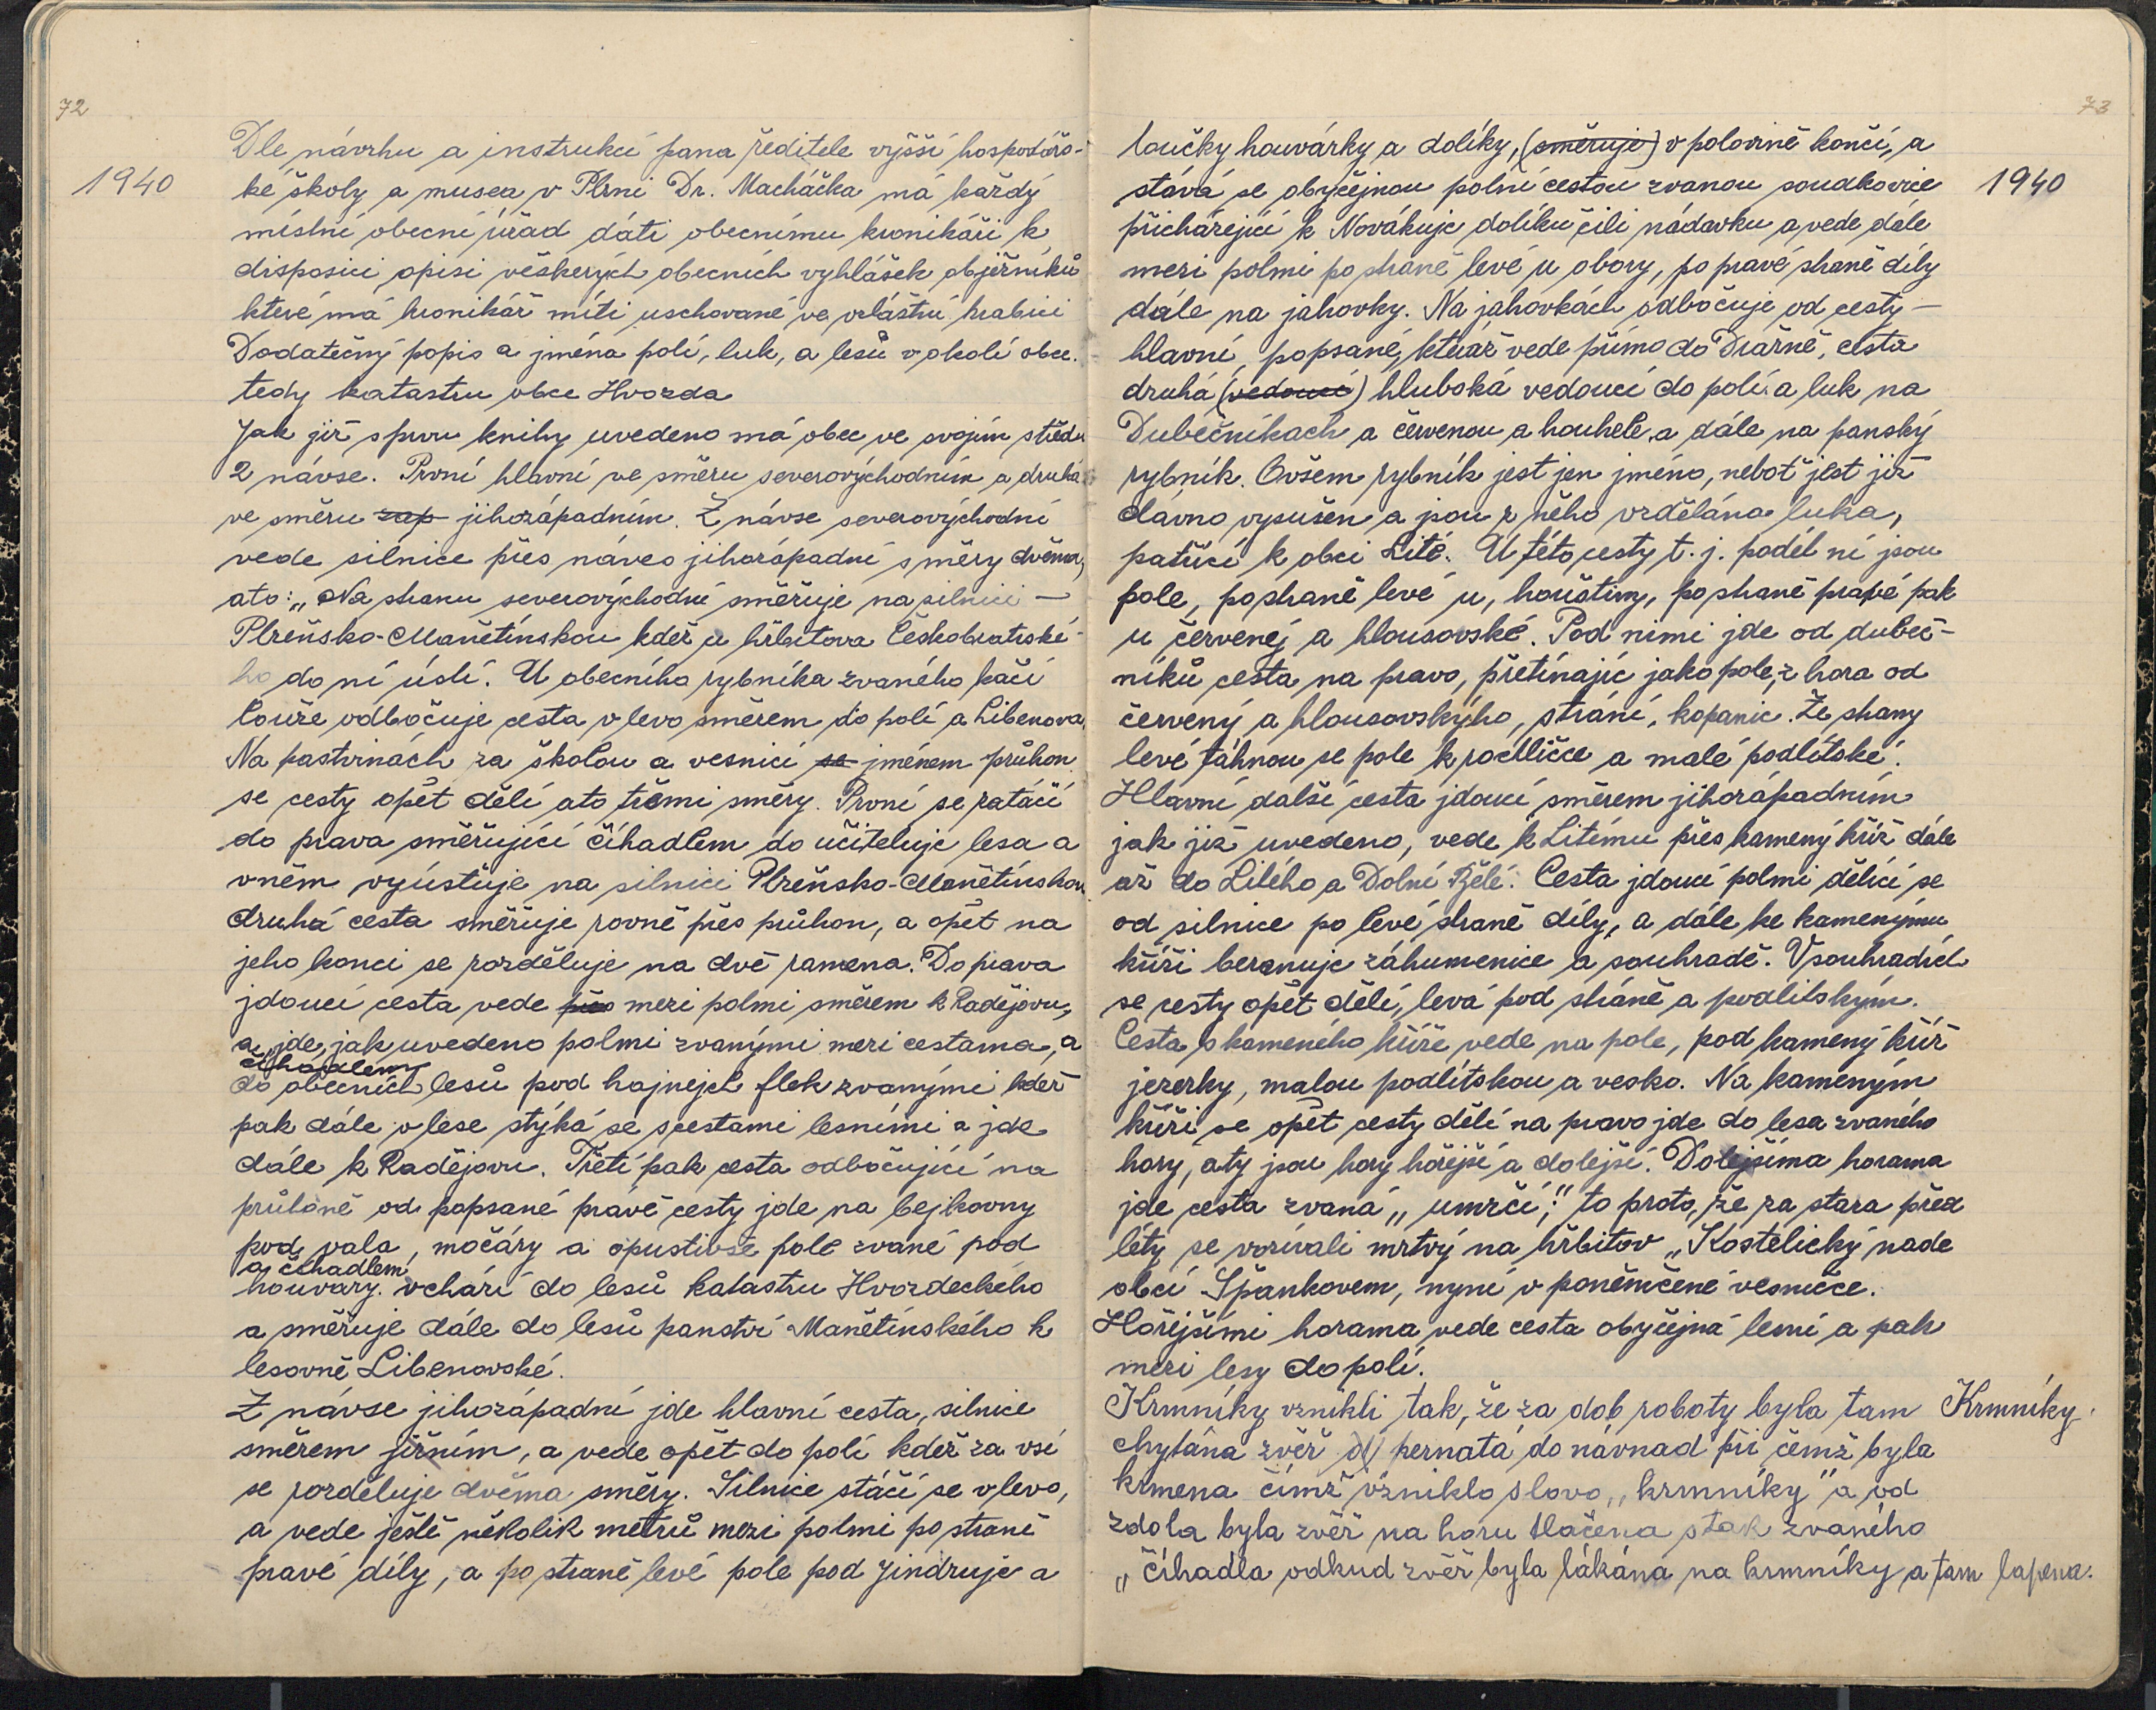 72
1940
Dle návrhu a instrukcí pana ředitele vyšší hospodářs-
ké školy a musea v Plzni Dr. Macháčka má každý
místní obecní úřad dáti obecnímu kronikáři k
disposici opisi věškerých obecních vyhlášek objěžníků
které má kronikář míti uschované ve zvláštní krabici
Dodatečný popis a jména polí, luk, a lesů v okolí obce.
tedy katastru obce Hvozda
Jak již spuru knihy uvedeno má obec ve svojím středu
2 návse. První hlavní ve směru severovýchodním a druhá
ve směru zap jihozápadním. Z návse severovýchodní
vede silnice přes náves jihozápadní směry dvěma,
ato: „Na stranu severovýchodní směřuje na silnici —
Plzeňsko-Manětínskou kdež u hřbitova Českobratrské-
ho do ní ústí. U obecního rybníka zvaného kačí
louže odbočuje cesta v levo směrem do polí a Libenova,
Na pastvinách za školou a vesnicí se jménem průhon
se cesty opět dělí ato třemi směry. První se zatáčí
do prava směřující číhadlem do učiteluje lesa a
vněm vyúsťuje na silnici Plzeňsko-Manětínskou
druhá cesta směřuje rovně přes průhon, a opět na
jeho konci se rozděluje na dvě ramena. Do prava
jdoucí cesta vede přes mezi polmi směrem k Radějovu,
a jde, jak uvedeno polmi zvanými mezi cestama, a
číhadlem
do obecních lesů pod hajnejch flek zvanými kdež
pak dále v lese stýká se scestami lesními a jde
dále k Radějovu. Třetí pak cesta odbočující na
průhoně od popsané pravé cesty jde na bejkovny
pod vala, močáry a opustivše pole zvané pod
a číhadlem
houvary. vchází do lesů katastru Hvozdeckého
a směřuje dále do lesů panství Manětínského k
lesovně Libenovské.
Z návse jihozápadní jde hlavní cesta, silnice
směrem jižním, a vede opět do polí kdež za vsí
se rozděluje dvěma směry. Silnice stáčí se vlevo,
a vede ještě několik metrů mezi polmi po straně
pravé díly, a po straně levé pole pod Jindruje a
73
1940
loučky houvárky a dolíky, (směřuje) v polovině končí, a
stává se obyčejnou polní cestou zvanou soudkovice
přicházející k Novákuje dolíku čili nádavku a vede dále
mezi polmi po straně levé u obory, po pravé straně díly
dále na jahovky. Na jahovkách odbočuje od cesty —
hlavní popsané, kteráž vede přímo do Dražně, cesta
druhá (vedoucí) hlubská vedoucí do polí a luk na
Dubečníkach a červenou a houhele a dále na panský
rybník. Ovšem rybník jest jen jméno, neboť jest již
dávno vysušen a jsou z něho vzdělána luka,
patřící k obci Lité. U této cesty t. j. podél ní jsou
pole, po straně levé u, houštiny, po straně pravé pak
u červenéj a hlousovské. Pod nimi jde od dubeč-
níků cesta na pravo, přetínajíc jako pole, z hora od
červený a hlousovskýho, strání, kopanic. Ze strany
levé táhnou se pole k rochličce a malé podlítské.
Hlavní další cesta jdoucí směrem jihozápadním
jak již uvedeno, vede k Litému přes kamený kříž dále
až do Litého a Dolní Bělé. Cesta jdoucí polmi dělící se
od silnice po levé straně díly, a dále ke kamenýmu
kříži beranuje záhumenice a souhradě. V souhradích
se cesty opět dělí, levá pod stráně a podlitským.
Cesta s kameného kříže vede na pole, pod kamený kříž
jezerky, malou podlítskou a vesko. Na kameným
kříži se opět cesty dělí na pravo jde do lesa zvaného
hory, aty jsou hory hořejší a dolejší. Dolejšíma horama
jde cesta zvaná „umrčí," to proto, že za stara před
léty se vozívali mrtvý na hřbitov „Kostelický nade
obcí Špankovem, nyní v poněmčené vesničce.
Hořejšími horama vede cesta obyčejná lesní a pak
mezi lesy do polí.
Krmníky vznikli tak, že za dob roboty byla tam
Krmníky.
chytána zvěř pernatá do návnad při čemž byla
krmena čímž vzniklo slovo „krmníky" a od
zdola byla zvěř na horu tlačena s tak zvaného
„číhadla odkud zvěř byla lákána na krmníky a tam lapena.